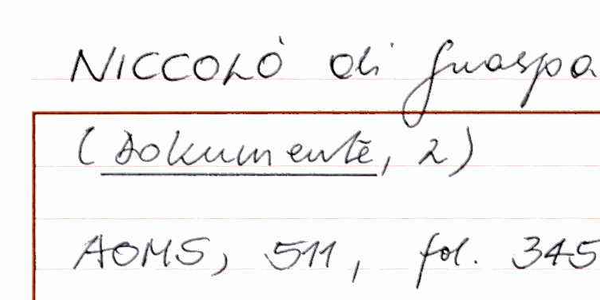 NICCOLÒ di Guaspa
(Dokumente, 2)
AOMS, 511, fol. 345